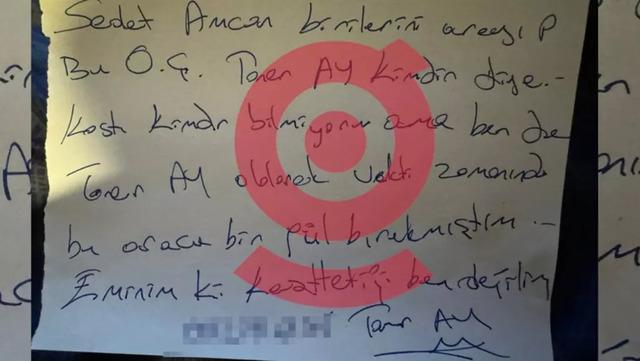 Sedat Amcan birilerini arayıp
Bu O.Ç. Taner AY kimdir diye.-
Kastı kimdir bilmiyorum ama ben de
Taner AY olarak vakti zamanında
bu araca bir gül bırakmıştım.-
Eminim ki kasttetiği ben değilim
Taner AY